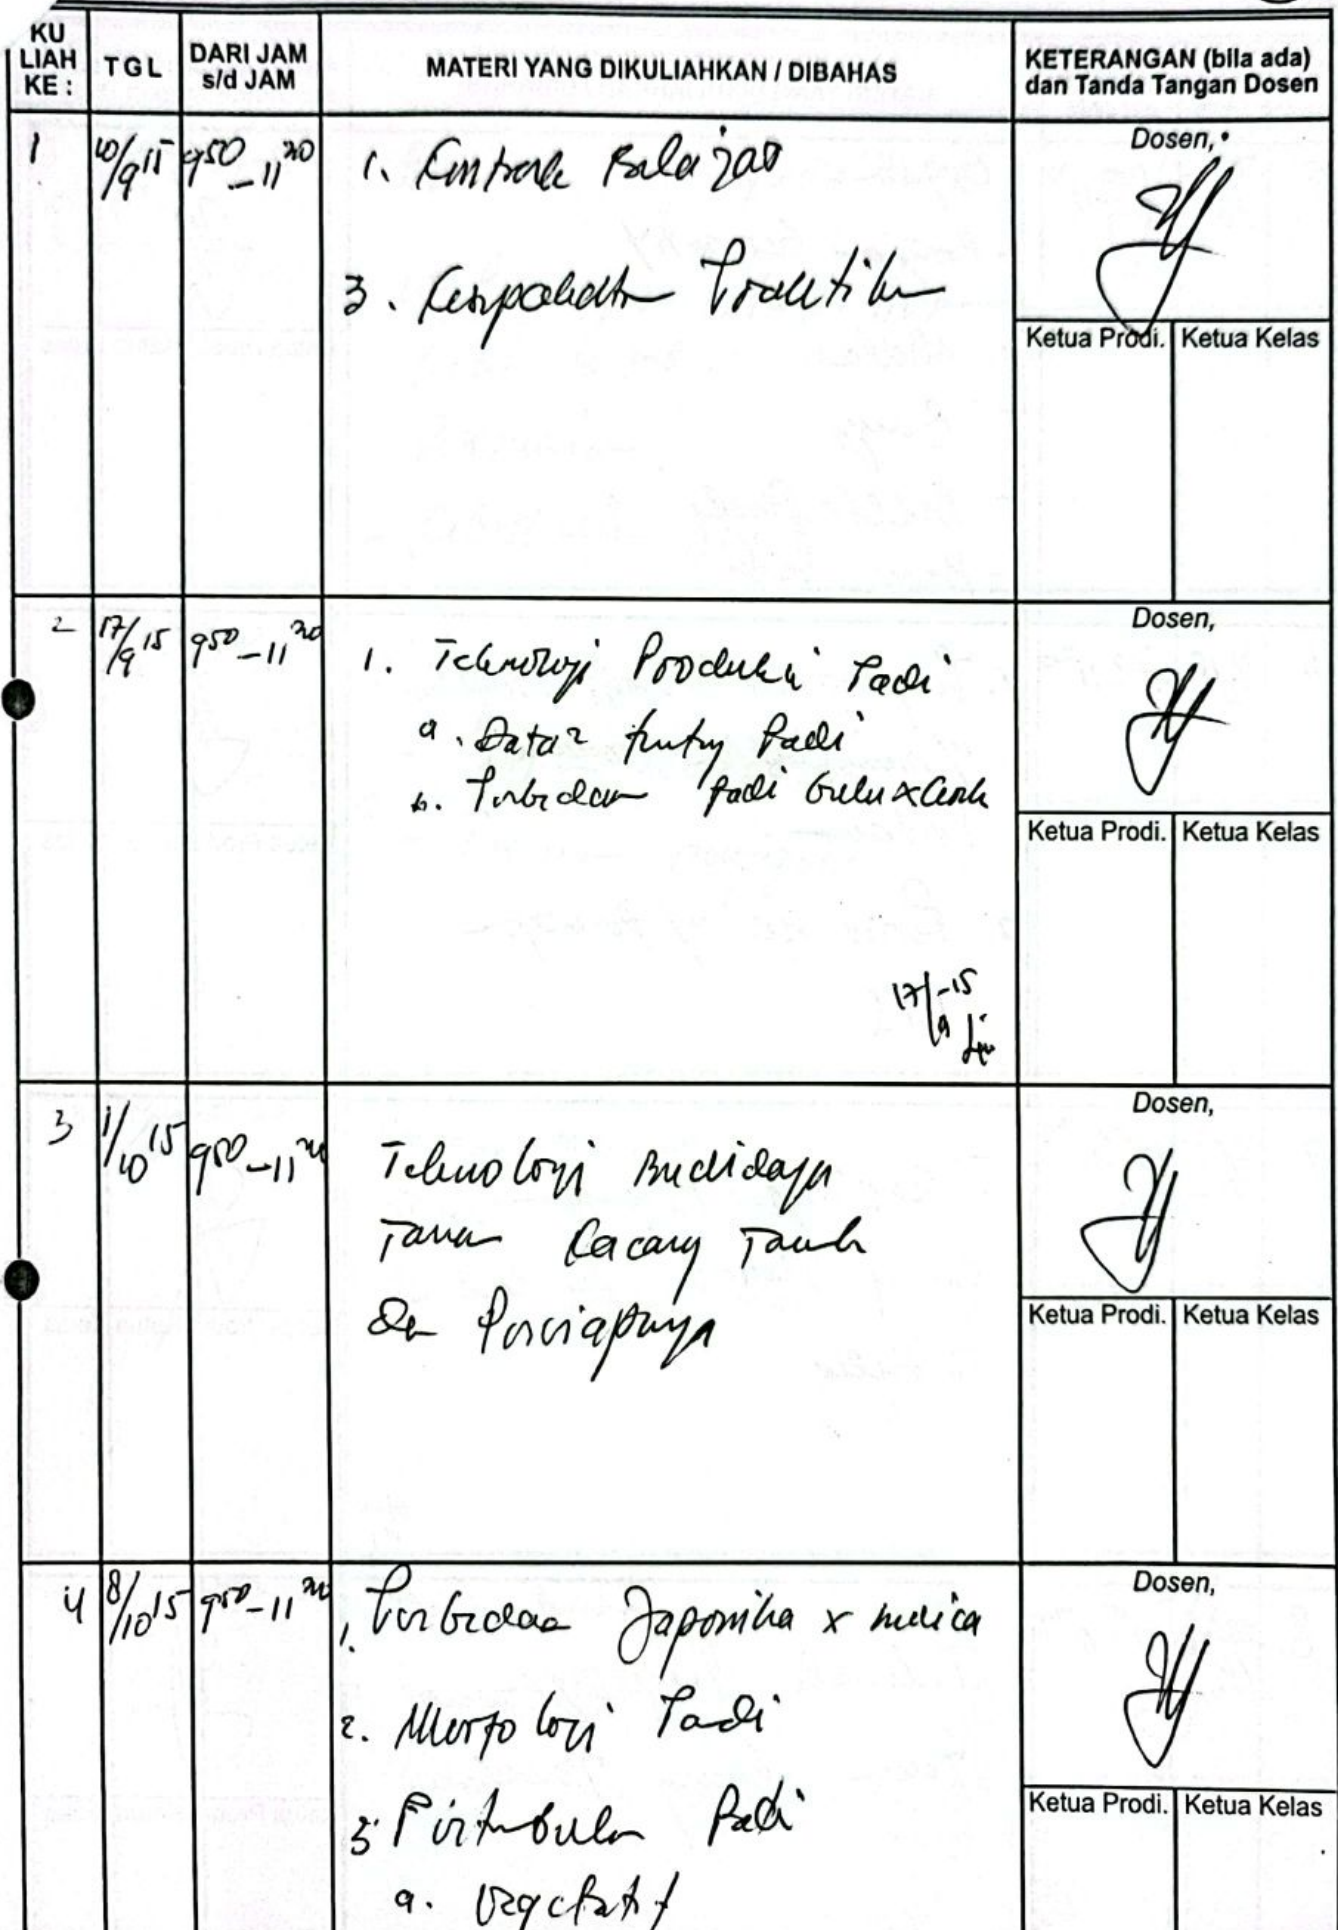 KU LIAH KE :
TGL
DARI JAM s/d JAM
MATERI YANG DIKULIAHKAN / DIBAHAS
KETERANGAN (bila ada) dan Tanda Tangan Dosen
1
10/9 15
9 50 - 11 20
1. Kontrak Belajar
3. Kesepakatan Praktikum
Dosen,
Ketua Prodi.
Ketua Kelas
2
17/9 15
9 50 - 11 20
1. Teknologi Produksi Padi
a. Data2 ttg Padi
b. Perbedaan Padi Gulu x Cereh
17/9 -15
Dosen,
Ketua Prodi.
Ketua Kelas
3
1/10 15
9 50 - 11 20
Teknologi Budidaya
Tanam Kacang Tanah
Dan
Dosen,
Ketua Prodi.
Ketua Kelas
4
8/10 15
9 50 - 11 20
1. Perbedaan Japonika x indica
2. Morfologi Padi
3. Pertumbuhan Padi
a. Vegetatif
Dosen,
Ketua Prodi.
Ketua Kelas